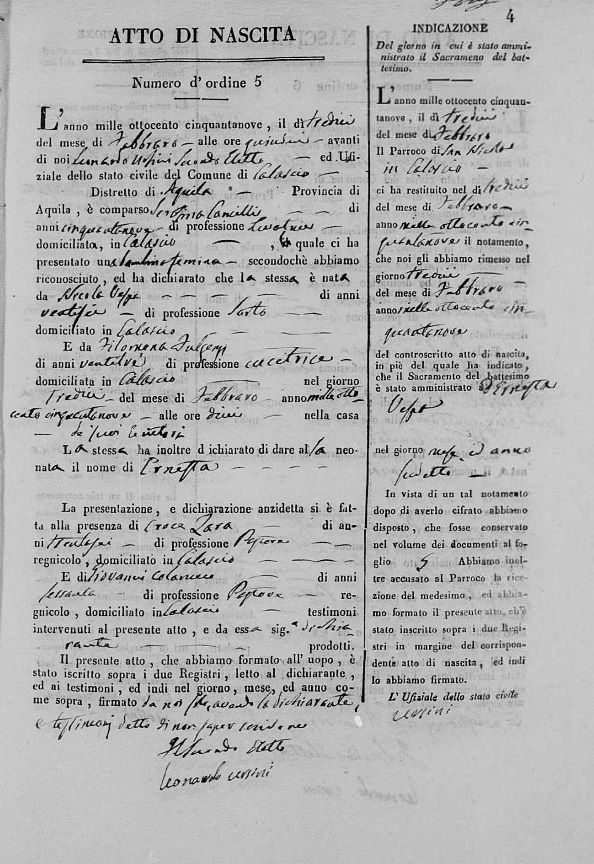 4
ATTO DI NASCITA
Numero d'ordine 5
L'anno mille ottocento cinquantanove, il dì tredici
del mese di Febbraro - alle ore quindici - avanti
di noi Leonardo Ursini Secondo Eletto - ed Ufi-
ziale dello stato civile del Comune di Calascio -
Distretto di Aquila - Provincia di
Aquila, è comparsa Serafina Camilli - - di
anni cinquantanove - di professione Levatrice -
domiciliata, in Calascio - , la quale ci ha
presentato una bambina femina - secondochè abbiamo
riconosciuto, ed ha dichiarato che la stessa è nata
da Nicola Vespa - - - - - di anni
ventisei - di professione Sarto - -
domiciliato in Calascio - - - -
E da Filomena Fulgenzi
di anni ventitrè di professione cucitrice -
domiciliata in Calascio - nel giorno
Tredici - del mese di Febbraro - anno mille otto-
cento cinquantanove - alle ore dieci - nella casa
- de' suoi Genitori
La stessa ha inoltre dichiarato di dare alla neo-
nata il nome di Ernesta - - - -
La presentazione, e dichiarazione anzidetta si è fat-
ta alla presenza di Croce Zara - - di an-
ni - di professione -
regnicolo, domiciliato in Calascio - - -
E di Giovanni Colarusso - - di anni
sessanta - di professione - re-
gnicolo, domiciliato in Calascio - testimoni
intervenuti al presente atto, e da essa sig.a dichia-
rante - prodotti.
Il presente atto, che abbiamo formato all'uopo, è
stato iscritto sopra i due Registri, letto al dichiarante,
ed ai testimoni, ed indi nel giorno, mese, ed anno co-
me sopra, firmato da noi solo, avendo la dichiarante,
e testimonj detto di non saper scrivere
Il Secondo Eletto
Leonardo Ursini
INDICAZIONE
Del giorno in cui è stato ammi-
nistrato il Sacrameno del bat-
tesimo.
L'anno mille ottocento cinquan-
tanove, il dì tredici
del mese di Febbraro
Il Parroco di San Nicola
in Calascio -
ci ha restituito nel dì tredici
del mese di Febbraro -
anno mille ottocento cin-
quantanove il notamento,
che noi gli abbiamo rimesso nel
giorno tredici -
del mese di Febbraro
anno mille ottocento cin
quantanove
del controscritto atto di nascita,
in piè del quale ha indicato,
che il Sacramento del battesimo
è stato amministrato a Ernesta
Vespa
nel giorno mese ed anno
sudetto -
In vista di un tal notamento
dopo di averlo cifrato abbiamo
disposto, che fosse conservato
nel volume dei documenti al fo-
glio 5 Abbiamo inol-
tre accusato al Parroco la rice-
zione del medesimo, ed abbia-
mo formato il presente atto, ch'è
stato inscritto sopra i due Regi-
stri in margine del corrispon-
dente atto di nascita, ed indi
lo abbiamo firmato.
L'Ufiziale dello stato civile
Ursini